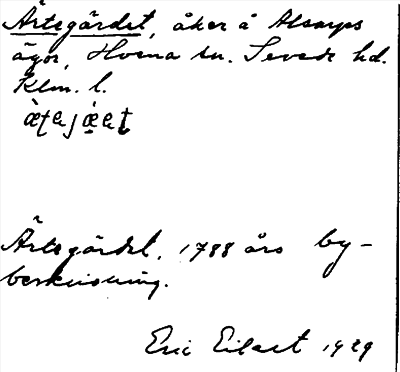 Ärtsgärdet, åker å Alsarps
ägor, Hvena sn. Sevede hd.
Klm. l.
Ärtsgärdet, 1788 års by-
beskrivning.
Eric Eilert 1929